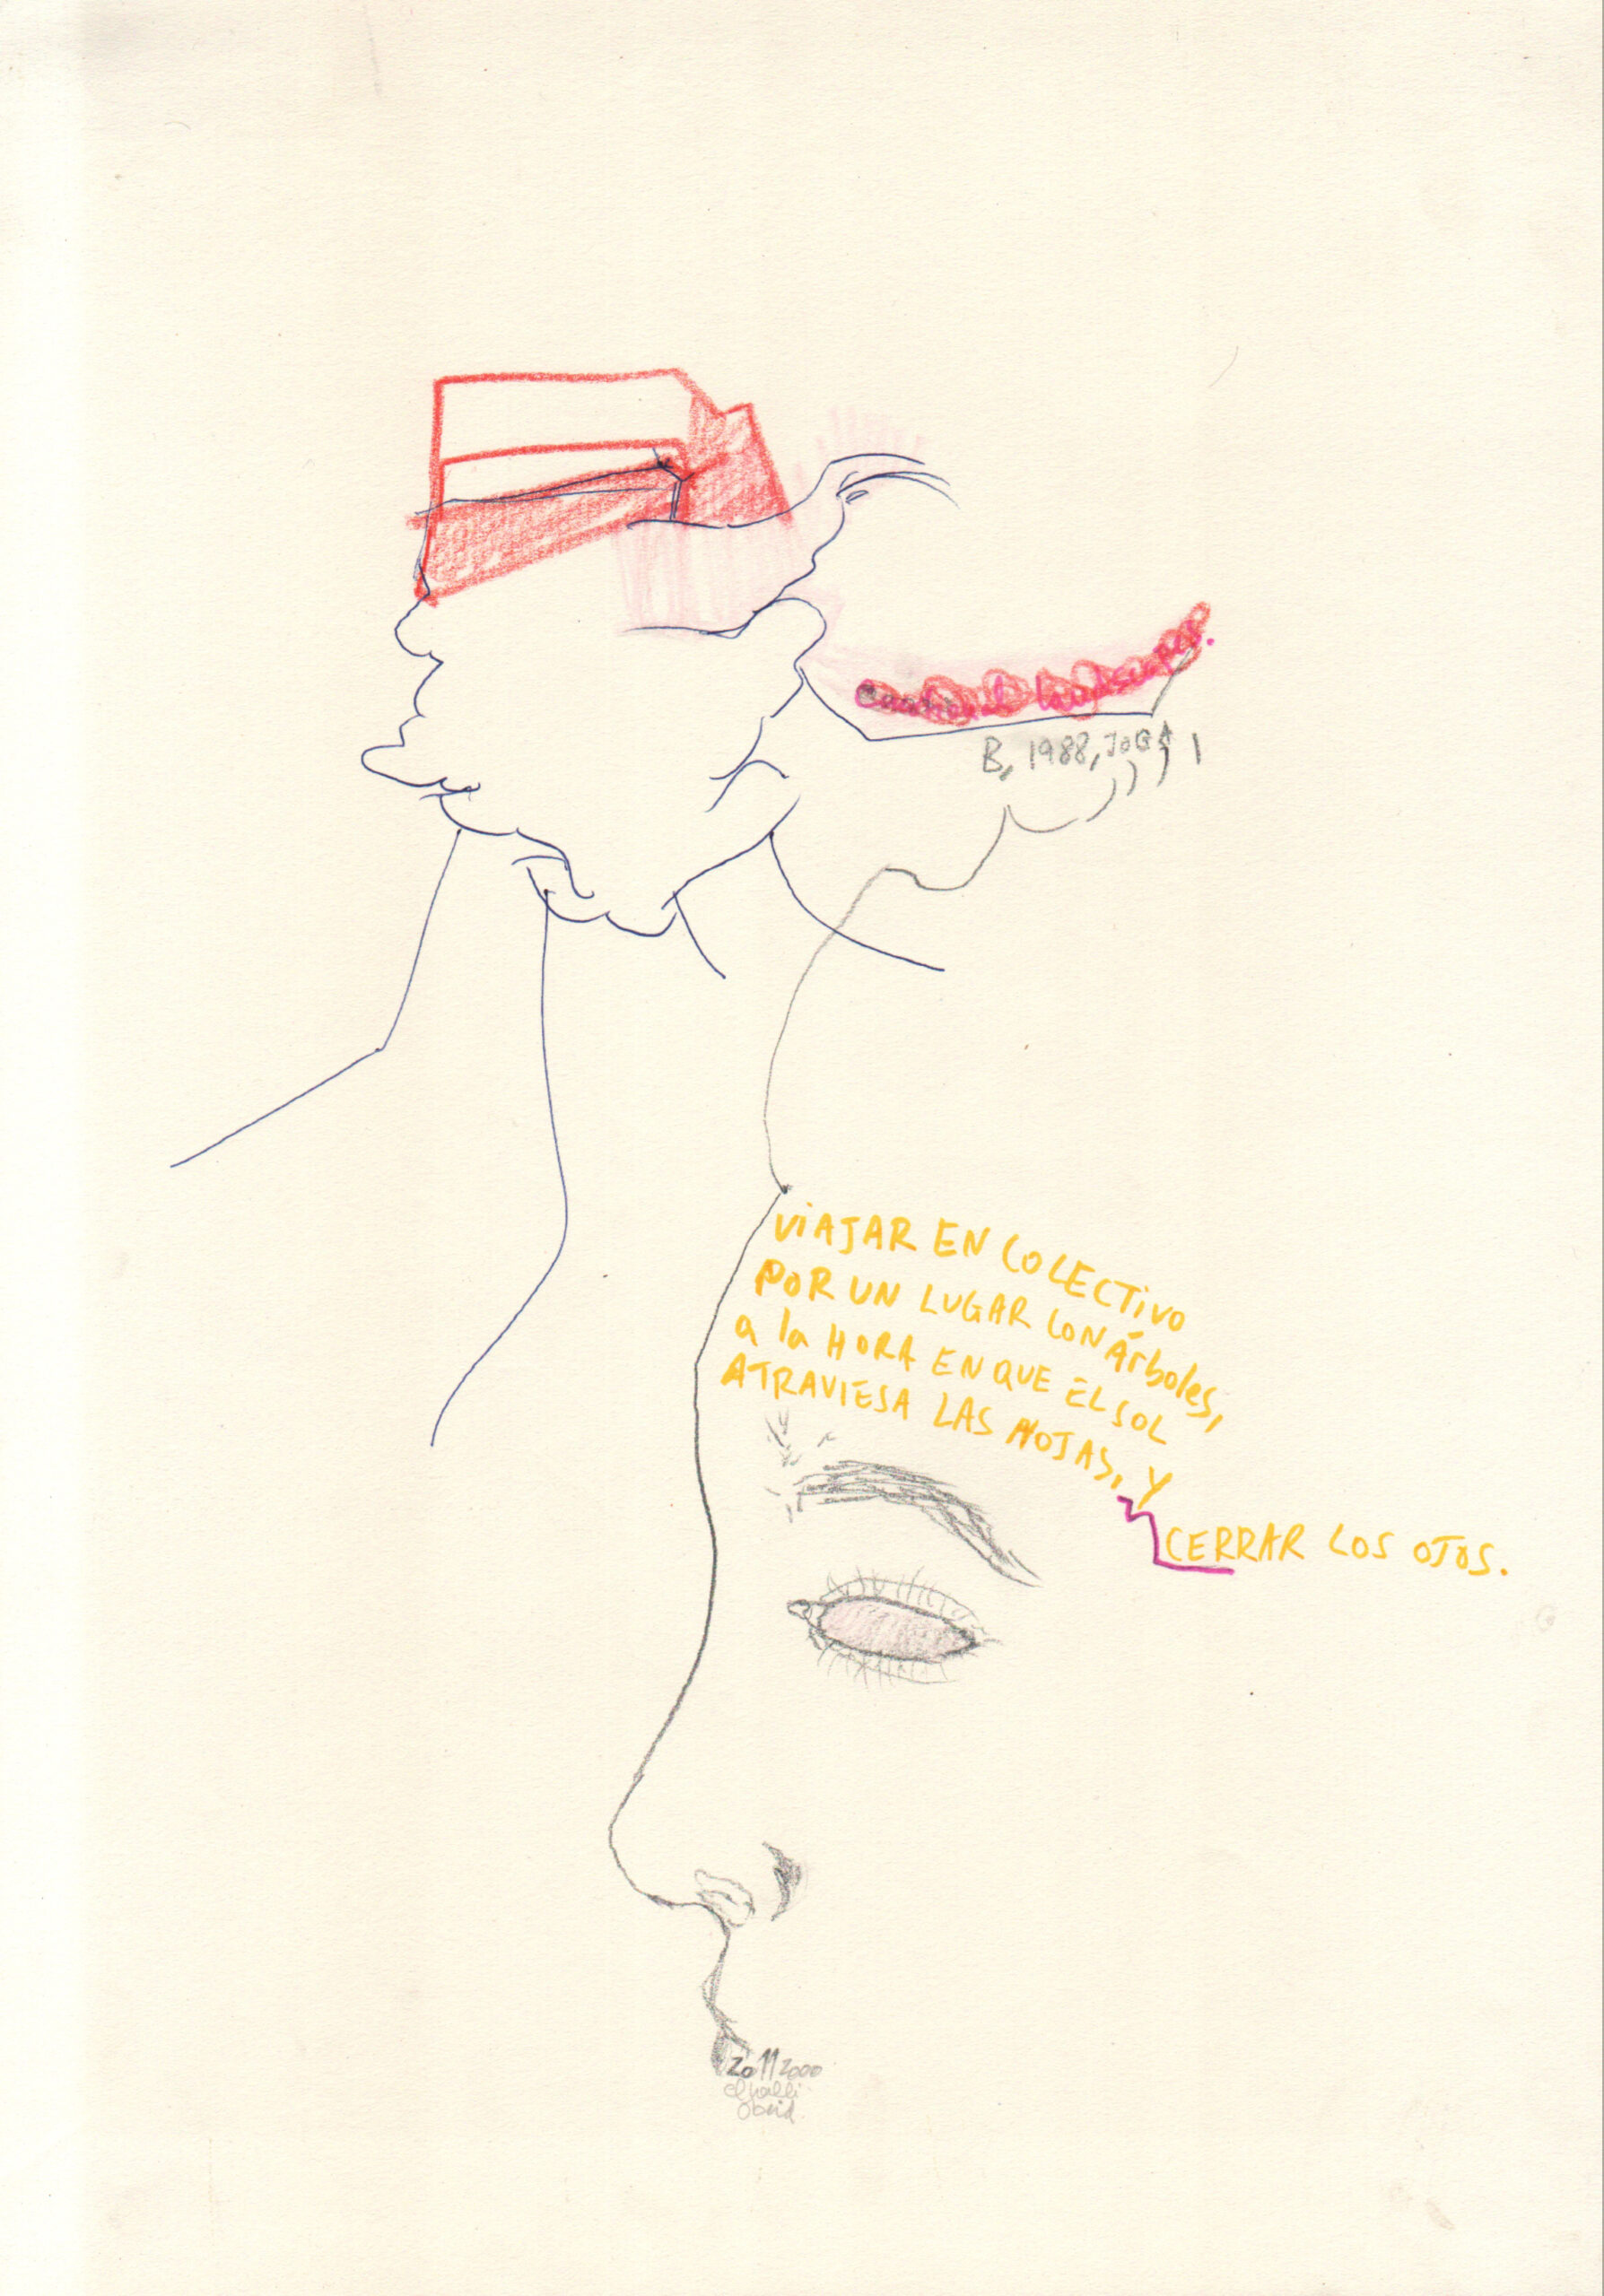 B, 1988, JOGA
VIAJAR EN COLECTIVO
POR UN LUGAR CON Árboles,
a la HORA EN QUE EL SOL
ATRAVIESA LAS HOJAS, Y
CERRAR LOS OJOS.
2011 2000